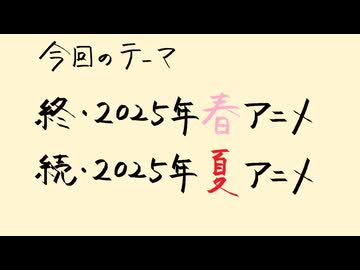 今回のテーマ
終・2025年春アニメ
続・2025年夏アニメ